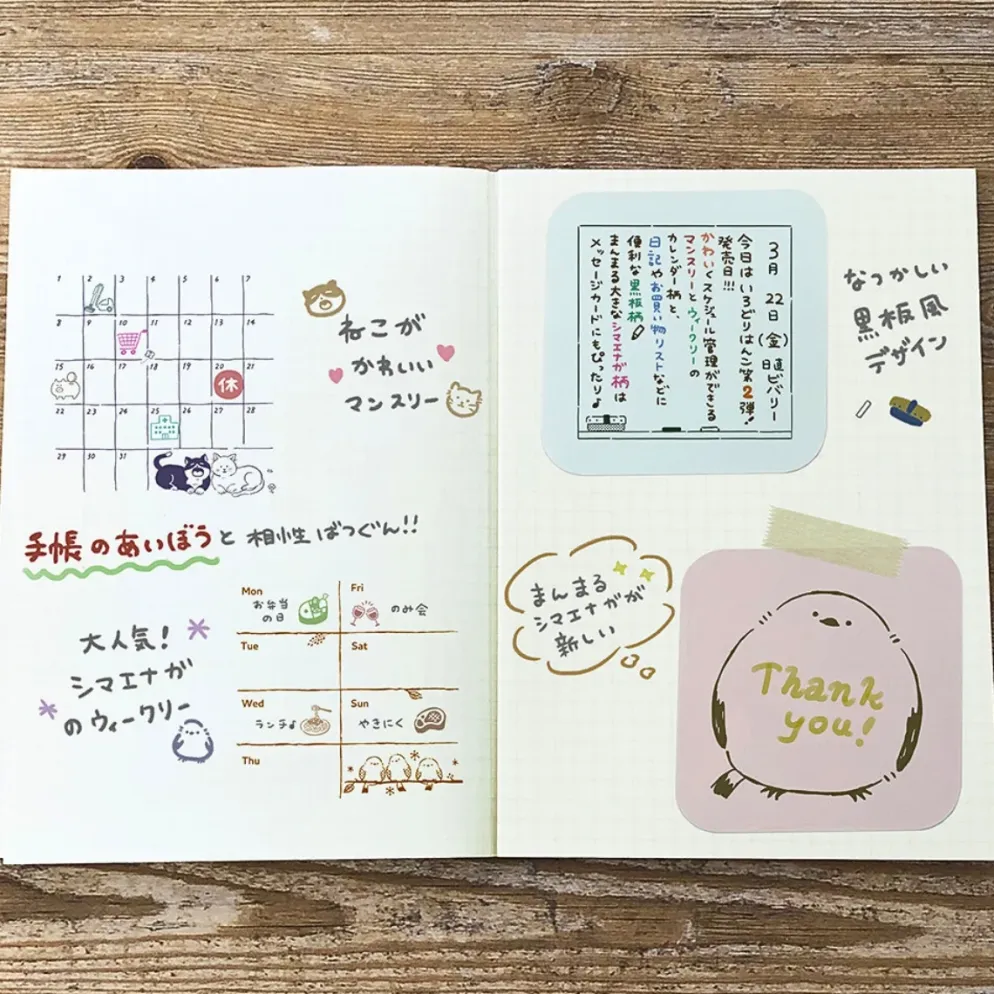 1 2 3 4 5 6 7
8 9 10 11 12 13 14
15 16 17 18 19 20 21
休
22 23 24 25 26 27 28
29 30 31
ねこが
かわいい
マンスリー
手帳のあいぼうと相性ばつぐん!!
大人気!
シマエナガ
のウィークリー
Mon
お弁当
の日
Fri
のみ会
Tue
Sat
Wed
ランチ♪
Sun
やきにく
Thu
3月 22日(金) 日直ビバリー
今日はいろどりはんこ第2弾!
発売日!!!
かわいくスケジュール管理ができる
マンスリーとウィークリーの
カレンダー柄と、
日記やお買い物リストなどに
便利な黒板柄
まんまる大きなシマエナガ柄は
メッセージカードにもぴったり♪
なつかしい
黒板風
デザイン
まんまる
シマエナガが
新しい
Thank
you!